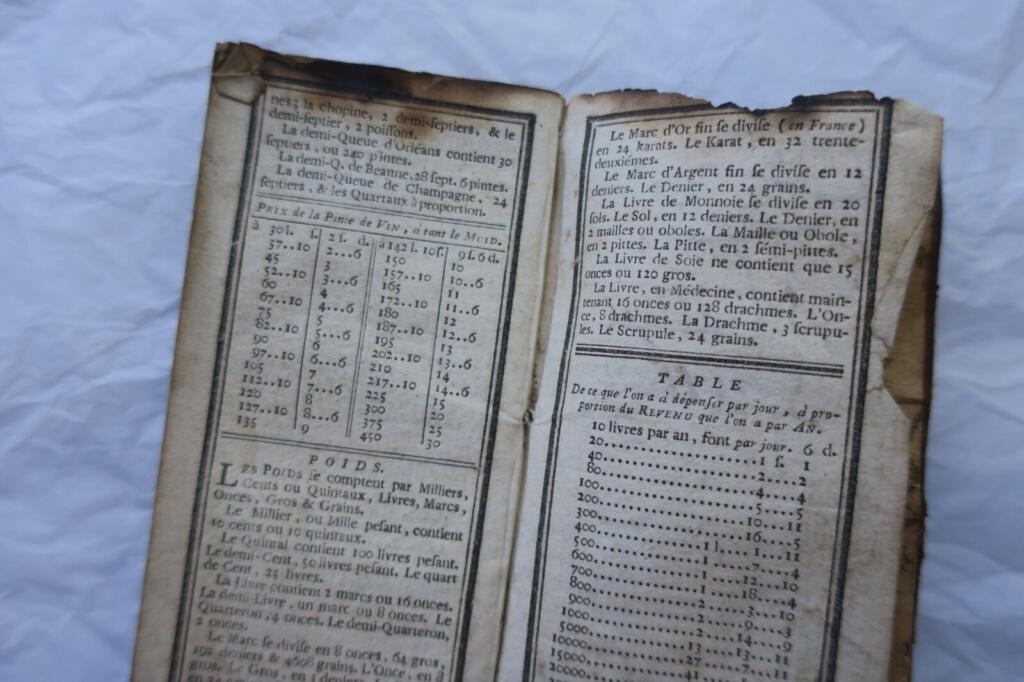 nes; la chopine, 2 demi-septiers, & le
demi-septier, 2 poissons.
La demi-Queue d'Orléans contient 30
septiers, ou 240 pintes.
La demi-Q. de Beaune, 28 sept. 6 pintes.
La demi-Queue de Champagne, 24
septiers, & les Quartaux à proportion.
PRIX de la Pinte de VIN, à tant le MUID.
à 30 l. s. 2 s. d. à 142 l. 10 s. 9 s. 6 d.
37..10 2...6 150 10
45 3 157..10 10..6
52..10 3...6 165 11
60 4 172..10 11..6
67..10 4...6 180 12
75 5 187..10 12..6
82..10 5...6 195 13
90 6 202..10 13..6
97..10 6...6 210 14
105 7 217..10 14..6
112..10 7...6 225 15
120 8 300 20
127..10 8...6 375 25
135 9 450 30
POIDS.
LES POIDS se comptent par Milliers,
Cents ou Quintaux, Livres, Marcs,
Onces, Gros & Grains.
Le Millier, ou Mille pesant, contient
10 cents ou 10 quintaux.
Le Quintal contient 100 livres pesant.
Le demi-Cent, 50 livres pesant. Le quart
de Cent, 25 livres.
La Livre contient 2 marcs ou 16 onces.
La demi-Livre, un marc ou 8 onces. Le
Quarteron, 4 onces. Le demi-Quarteron,
2 onces.
Le Marc se divise en 8 onces, 64 gros,
192 deniers & 4608 grains. L'Once, en 8
gros. Le Gros, en 3 deniers
Le Marc d'Or fin se divise (en France)
en 24 karats. Le Karat, en 32 trente-
deuxièmes.
Le Marc d'Argent fin se divise en 12
deniers. Le Denier, en 24 grains.
La Livre de Monnoie se divise en 20
sols. Le Sol, en 12 deniers. Le Denier, en
2 mailles ou oboles. La Maille ou Obole,
en 2 pittes. La Pitte, en 2 sémi-pittes.
La Livre de Soie ne contient que 15
onces ou 120 gros.
La Livre, en Médecine, contient main-
tenant 16 onces ou 128 drachmes. L'On-
ce, 8 drachmes. La Drachme, 3 scrupu-
les. Le Scrupule, 24 grains.
TABLE
De ce que l'on a à dépenser par jour, à pro-
portion du REVENU que l'on a par AN.
10 livres par an, font par jour. 6 d.
20 1 s. 1
40 2...2
80 4...4
100 5...5
200 10...11
300 16...5
400 1 l. 1...11
500 1 7...4
600 1 12...10
700 1 18...4
800 2 3...10
900 2 9...3
1000 2 14...9
5000 13 13...11
10000 27 7...11
15000
20000